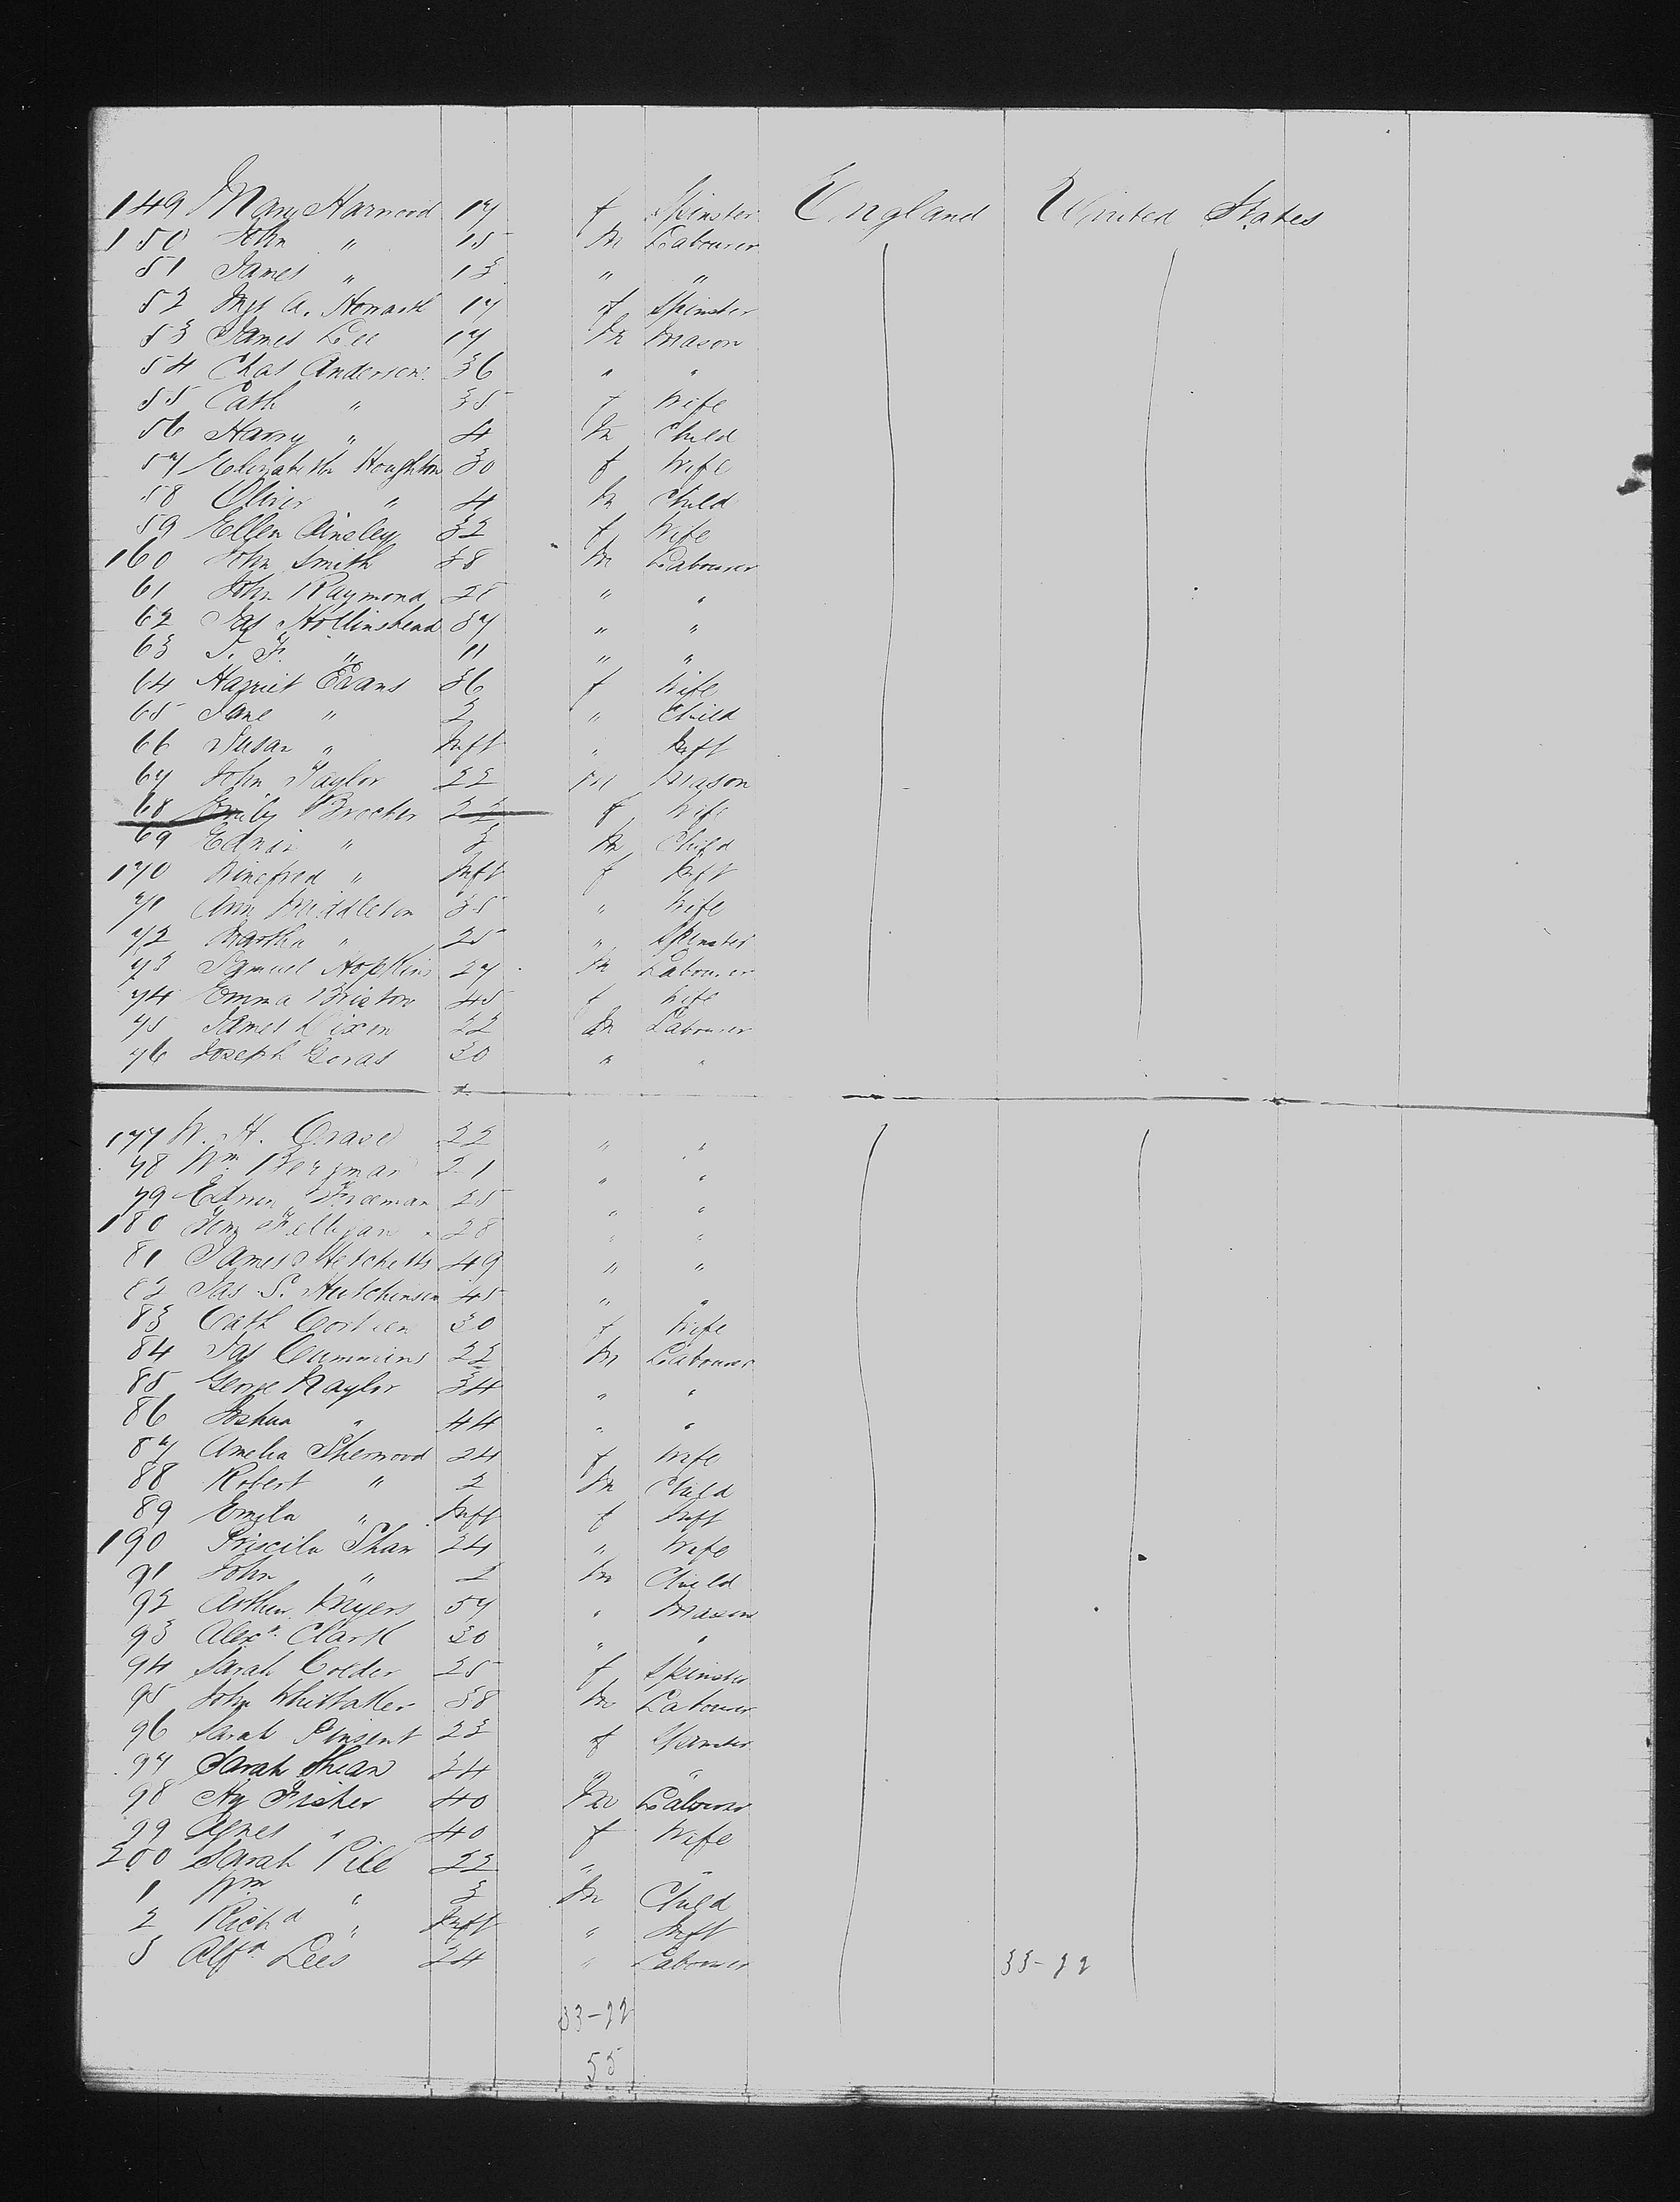 149 Mary Harwood 17 f Spinster England United States
150 John " 15 m Labourer
51 James " 13 " "
52 A. Howarth 17 f Spinster
53 James Lee 17 m Mason
54 Chas Anderson 36 " "
55 Cath " 35 f Wife
56 Harry " 4 m Child
57 Elizabeth Houghton 30 f Wife
58 Oliver " 4 m Child
59 Ellen Ainsley 32 f Wife
160 John Smith 38 m Labourer
61 John Raymond 28 " "
62 Jas Hollinshead 37 " "
63 T. F. " 11 " "
64 Harriet Evans 36 f Wife
65 Jane " 2 " Child
66 Susan " Inft " Inft
67 John Taylor 22 m Mason
68 Emily Brocker 22 f Wife
69 Edwin " 3 m Child
170 Winefred " Inft f Inft
71 Ann Middleton 35 " Wife
72 Martha " 25 " Spinster
73 Samuel Hopkins 27 m Labourer
74 Emma Briston 45 f Wife
75 James Dixon 22 m Labourer
76 Joseph Goras 30 " "
177 W. H. Crase 22 " "
78 Wm Bergman 21 " "
79 Edwin Freeman 25 " "
180 28 " "
81 James 49 " "
82 Jas S. Hutchinson 45 " "
83 Cath 30 f Wife
84 Jas Cummins 22 m Labourer
85 George Naylor 34 " "
86 Joshua " 44 " "
87 Amelia Sherwood 24 f Wife
88 Robert " 2 m Child
89 Emila " Inft f Inft
190 Priscila Shaw 24 " Wife
91 John " 2 m Child
92 Arthur Myers 57 " Mason
93 Alexr Clark 30 " "
94 Sarah Colder 25 f Spinster
95 John Whittaker 38 m Labourer
96 Sarah Pinsent 23 f Spinster
97 Sarah Shean 24 "
98 Hy Fisher 40 m Labourer
99 Agnes " 40 f Wife
200 Sarah Pill 22 " "
1 Wm " 3 m Child
2 Richd " Inft " Inft
3 Alfd Lees 24 " Labourer 33-22
33-22
55